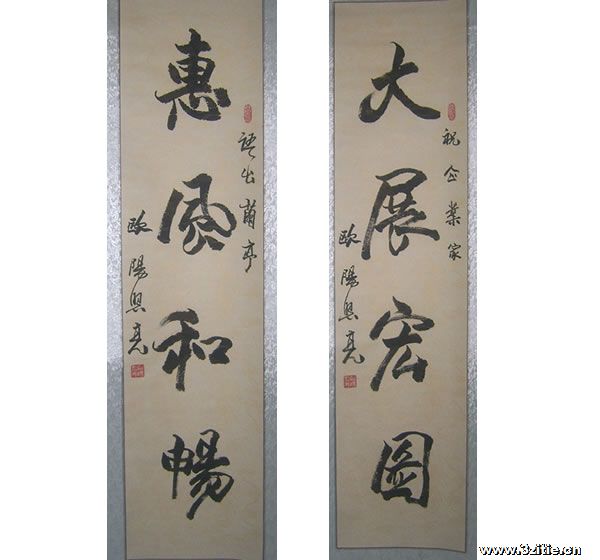 大展宏圖
祝企業家
歐陽照亮
惠風和暢
語出蘭亭
歐陽照亮
www.3zitie.cn